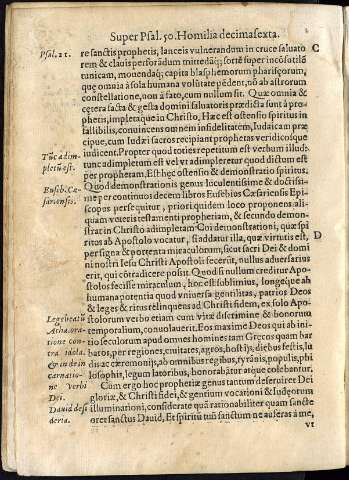 Super Psal. 50. Homilia decimasexta.
Psal. 21.
re sanctis prophetis, lanceis vulnerandum in cruce saluato C
rem & clauis perforādum mittedāq; sortē super incōsutilē
tunicam, mouendaq; capita blasphemorum pharisęorum,
quę omnia a sola humana volūtate pēdent, nō ab astrorum
constellatione, non à fato, cum nullum sit. Quæ omnia &
cętera facta & gesta domini saluatoris prædicta sunt à pro-
phetis, impletaque in Christo, Hæc est ostensio spiritus in
fallibilis, conuincens omnem infidelitatem, Iudaicam præ
cipue, cum Iudæi sacros recipiant prophetas veridicosque
iudicent. Propter quod toties repetitum est verbum illud:
Tūc adim-
pletū est.
tunc adimpletum est vel vt adimpleretur quod dictum est
per prophetam, Est hęc ostensio & demonstratio spiritus.
Euseb. Cæ-
sariensis.
Quod demonstrationis genus luculentissime & doctissi-
me per continuos decem libros Eusebius Cæsariensis Epi-
scopus persequitur, priori quidem loco proponens ali-
quam veteris testamenti prophetiam, & secundo demon-
strat in Christo adimpletam Cui demonstrationi, quæ spi
ritus ab Apostolo vocatur, si addatur illa, quæ virtutis est, D
per signa & portenta miraculorum, sicut sacri Dei & domi
ni nostri Iesu Christi Apostoli fecerūt, nullus aduersarius
erit, qui cōtradicere possit. Quod si nullum creditur Apo-
stolos fecisse miraculum, hoc est sublimius, longeque ab
humana potentia quod vniuersa gentilitas, patrios Deos
& leges & ritus relinquens ad Christi fidem, ex solo Apo-
stolorum verbo etiam cum vitæ discrimine & honorum
temporalium, conuolauerit. Eos maxime Deos qui ab ini-
Lege beatū
Atha. ora-
tione con-
tra idola.
& in de in
carnatio-
ne verbi
Dei.
tio seculorum apud omnes homines tam Gręcos quam bar
baros, per regiones, ciuitates, agros, hostijs, diebus festis, lu
dis ac cæremonijs, ab omnibus regibus, tyrānis, populis, phi
losophis, legum latoribus, honorabātur atque colebantur.
Cum ergo hoc prophetiæ genus tantum deseruiret Dei
gloriæ, & Christi fidei, & gentium vocationi & Iudęorum
Dauid desi
deria.
illuminationi, considerate quā rationabiliter quam sancte
oret sanctus Dauid, Et spiritū tuū sanctum ne auferas à me,
vt